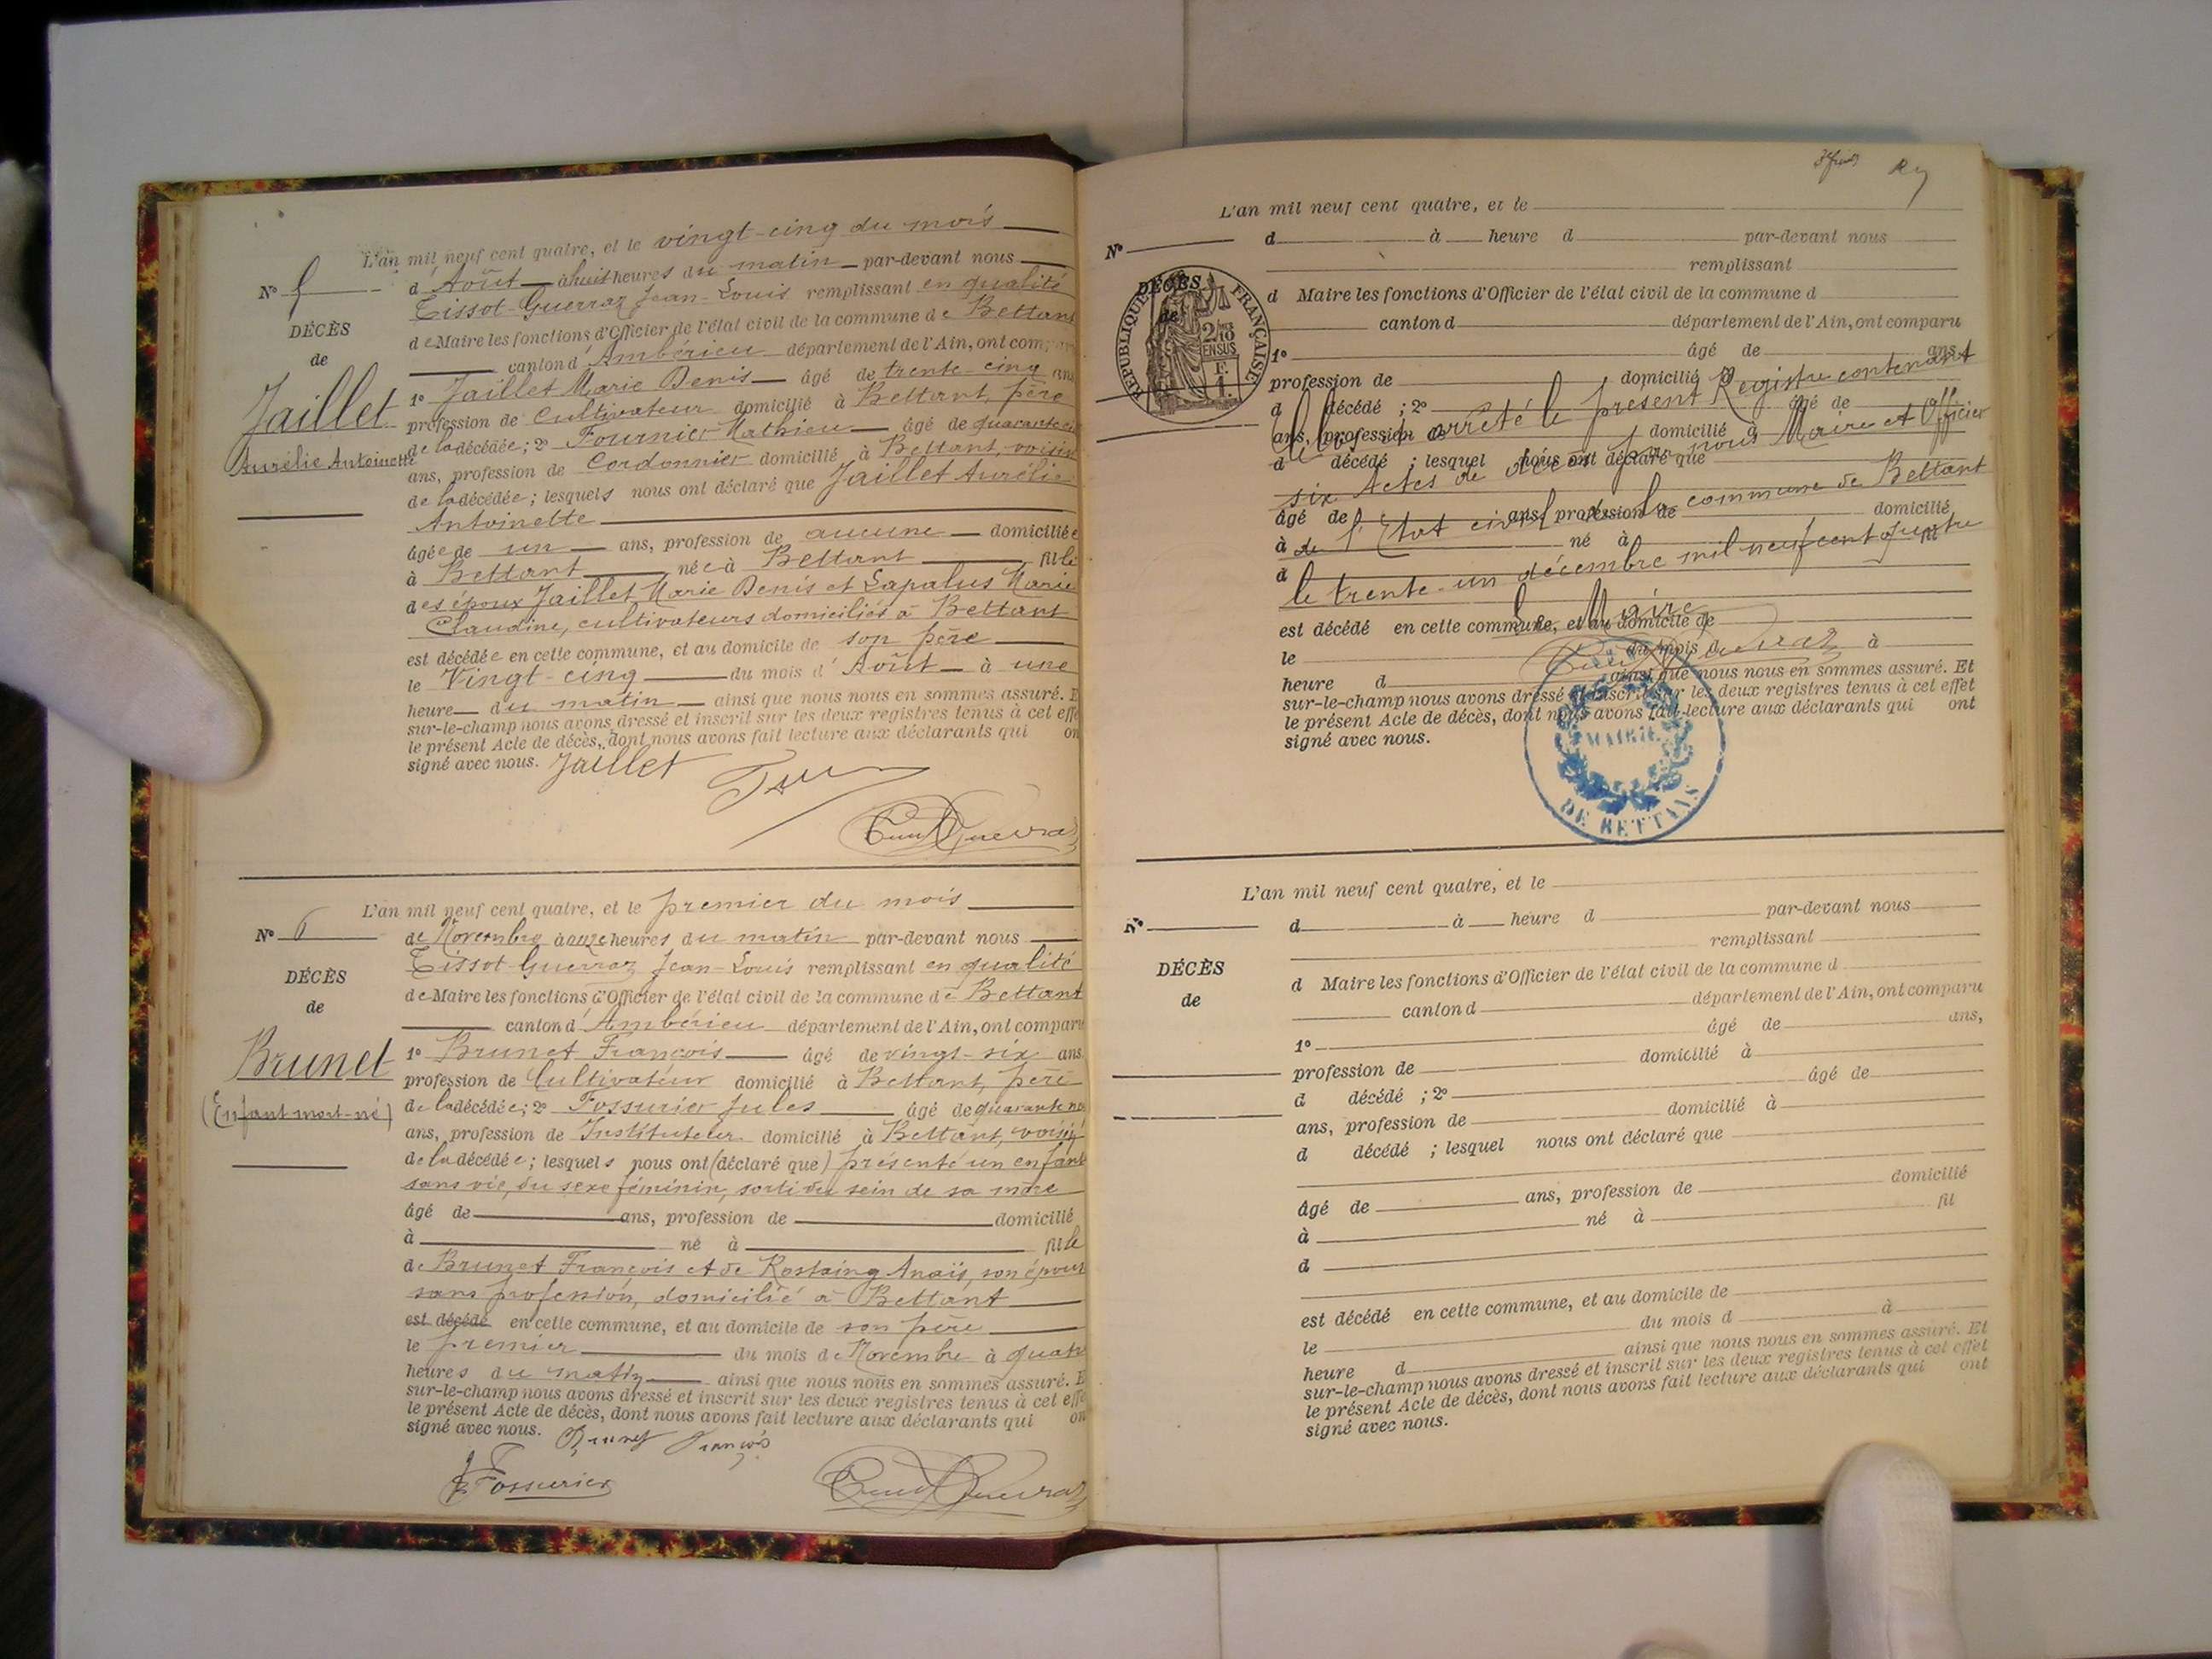 L'an mil neuf cent quatre, et le vingt-cinq du mois
N° 5
d'Août à huit heures du matin par-devant nous
Tissot-Guerraz Jean-Louis remplissant en qualité
DÉCÈS
de Maire les fonctions d'Officier de l'état civil de la commune de Bettant
de
canton d'Ambérieu département de l'Ain, ont comparu
Jaillet
Aurélie Antoinette
1° Jaillet Marie Denis âgé de trente-cinq ans
profession de Cultivateur domicilié à Bettant, père
de la décédée ; 2° Fournier Mathieu âgé de quarante
ans, profession de Cordonnier domicilié à Bettant, voisin
de la décédée ; lesquels nous ont déclaré que Jaillet Aurélie
Antoinette
âgée de un ans, profession de aucune domiciliée
à Bettant née à Bettant fille
des époux Jaillet Marie Denis et Lapalus Marie
Claudine, cultivateurs domiciliés à Bettant
est décédée en cette commune, et au domicile de son père
le Vingt-cinq du mois d'Août à une
heure du matin ainsi que nous nous en sommes assuré. E
sur-le-champ nous avons dressé et inscrit sur les deux registres tenus à cet effe
le présent Acte de décès, dont nous avons fait lecture aux déclarants qui on
signé avec nous. Jaillet
L'an mil neuf cent quatre, et le premier du mois
N° 6
de Novembre à onze heures du matin par-devant nous
Tissot-Guerraz Jean-Louis remplissant en qualité
DÉCÈS
de Maire les fonctions d'Officier de l'état civil de la commune de Bettant
de
canton d'Ambérieu département de l'Ain, ont comparu
Brunet
(Enfant mort-né)
1° Brunet François âgé de vingt-six ans
profession de Cultivateur domicilié à Bettant, père
de la décédée ; 2° Fossurier Jules âgé de quarante
ans, profession de Instituteur domicilié à Bettant, voisin
de la décédée ; lesquels nous ont (déclaré que) présenté un enfant
sans vie, du sexe féminin, sorti du sein de sa mère
âgé de ans, profession de domicilié
à né à fille
de Brunet François et de Rostaing Anaïs, son épouse
sans profession, domicilié à Bettant
est décédé en cette commune, et au domicile de son père
le premier du mois de Novembre à quatr
heures du matin ainsi que nous nous en sommes assuré. E
sur-le-champ nous avons dressé et inscrit sur les deux registres tenus à cet effe
le présent Acte de décès, dont nous avons fait lecture aux déclarants qui on
signé avec nous. Brunet François
J Fossurier
L'an mil neuf cent quatre, et le
N° d à heure d par-devant nous
remplissant
DÉCÈS
de
RÉPUBLIQUE FRANÇAISE
d Maire les fonctions d'Officier de l'état civil de la commune d
canton d département de l'Ain, ont comparu
1° âgé de ans
profession de domicilié à
d décédé ; 2° âgé de
ans, profession de domicilié à
d décédé ; lesquel nous ont déclaré que
âgé de ans, profession de domicilié
à né à fil
d
est décédé en cette commune, et au domicile de
le du mois d à
heure d ainsi que nous nous en sommes assuré. Et
sur-le-champ nous avons dressé et inscrit sur les deux registres tenus à cet effet
le présent Acte de décès, dont nous avons fait lecture aux déclarants qui ont
signé avec nous.
arrêté le présent Registre contenant
six Actes de décès par nous Maire et Officier
de l'Etat civil de la commune de Bettant
le trente-un décembre mil neuf cent quatre
Le Maire
MAIRIE
DE BETTANS
L'an mil neuf cent quatre, et le
N° d à heure d par-devant nous
remplissant
DÉCÈS
de
d Maire les fonctions d'Officier de l'état civil de la commune d
canton d département de l'Ain, ont comparu
1° âgé de ans,
profession de domicilié à
d décédé ; 2° âgé de
ans, profession de domicilié à
d décédé ; lesquel nous ont déclaré que
âgé de ans, profession de domicilié
à né à fil
d
est décédé en cette commune, et au domicile de
le du mois d à
heure d ainsi que nous nous en sommes assuré. Et
sur-le-champ nous avons dressé et inscrit sur les deux registres tenus à cet effet
le présent Acte de décès, dont nous avons fait lecture aux déclarants qui ont
signé avec nous.